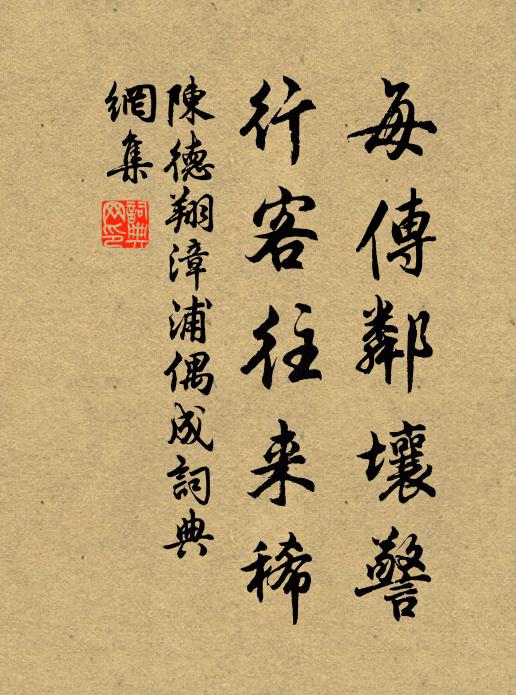 每傳鄰壤警
行客往来稀
陳德翔漳浦偶成詞典
網集
詞典
网印